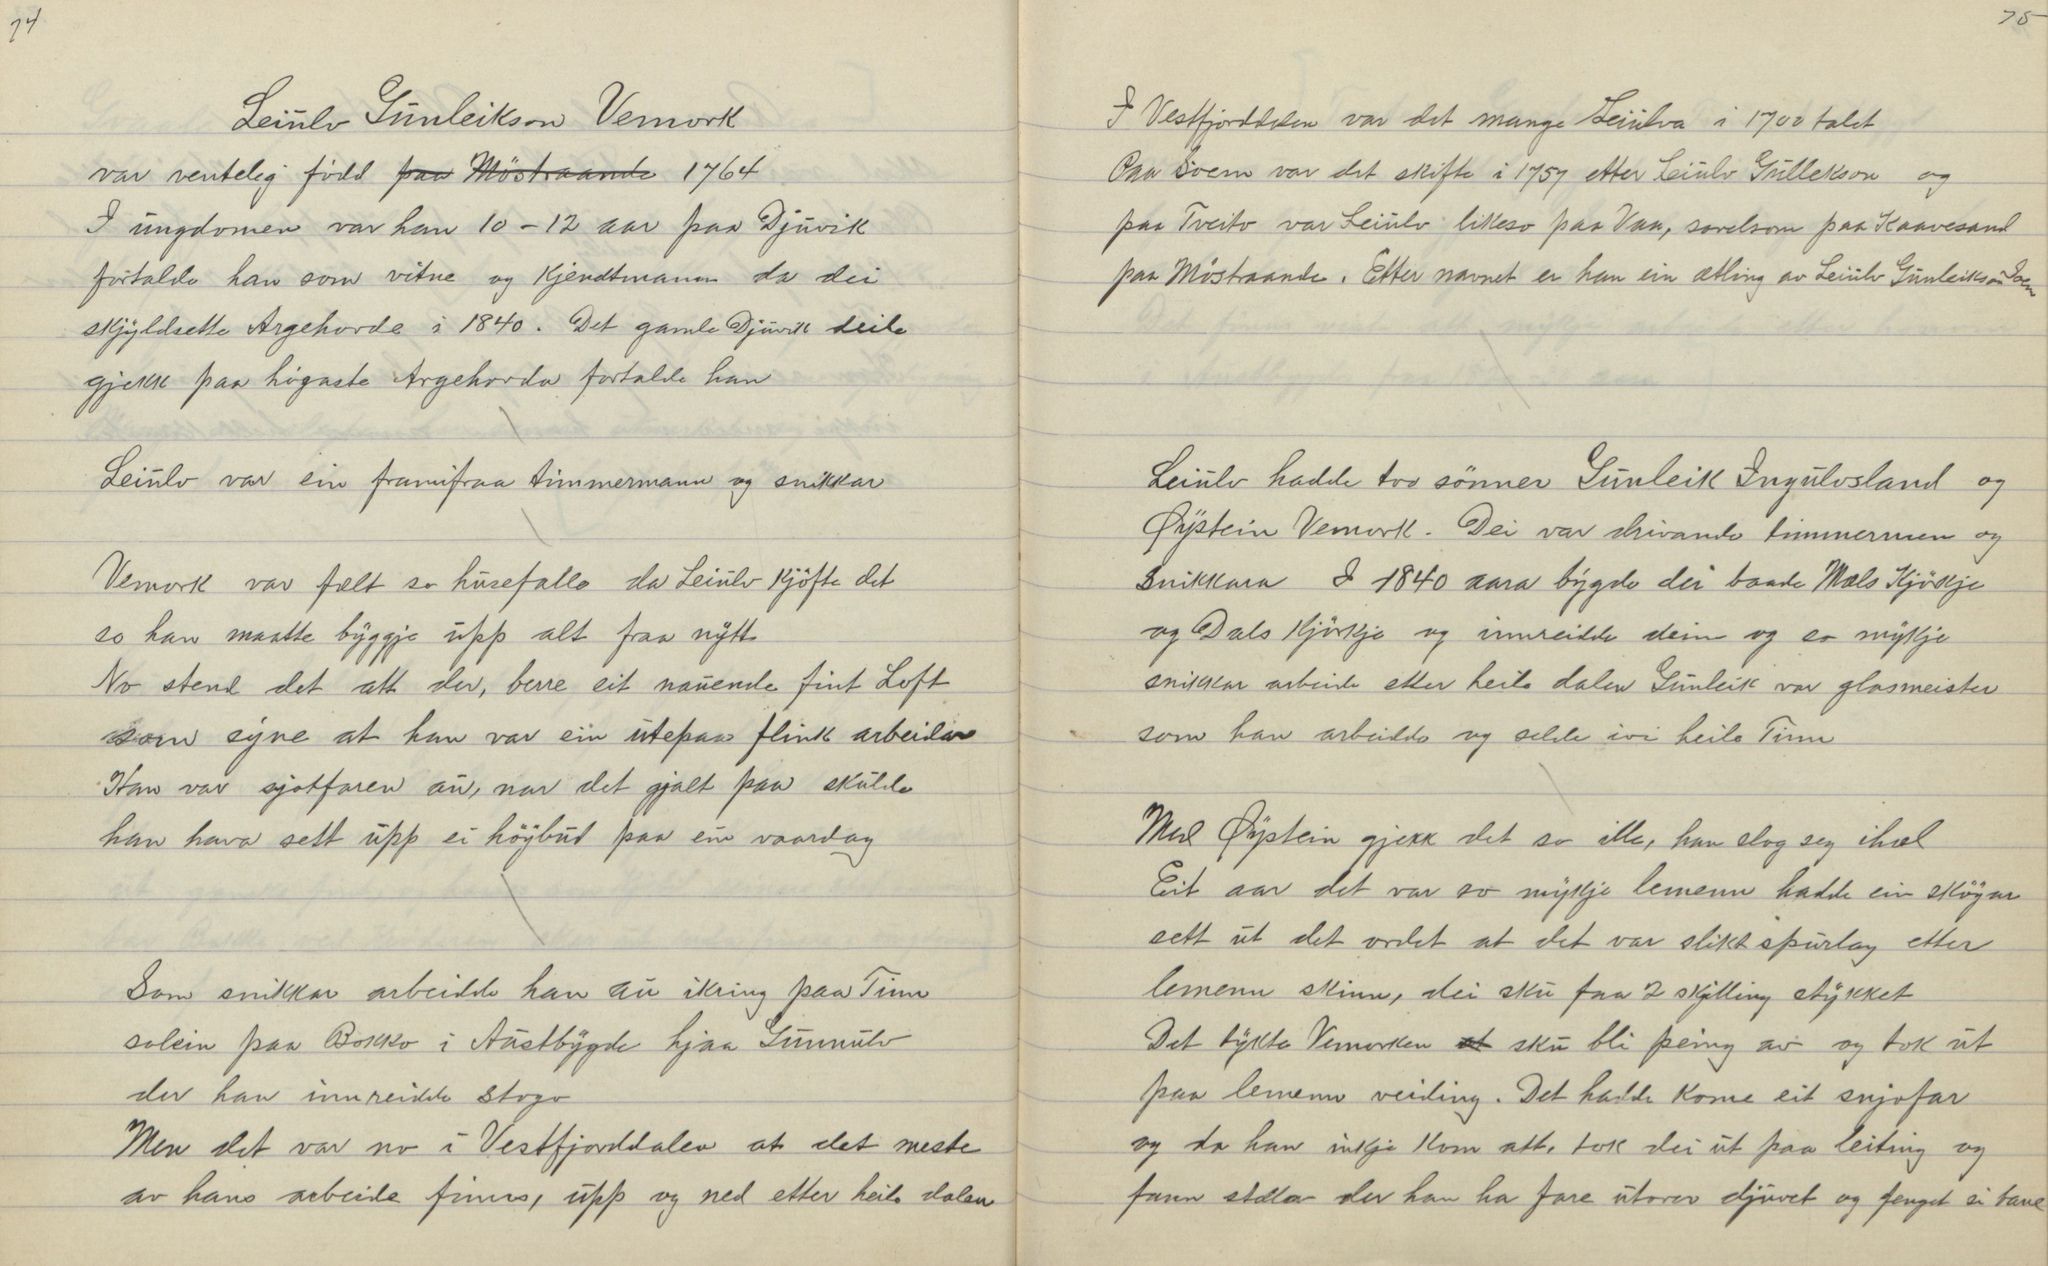 74
Leiulv Gunleikson Vemork
var ventelig född paa Möstraande 1764
I ungdomen var han 10-12 aar paa Djuvik
fortalde han som vitne og kjendtmann da dei
skjyldsette Argehovde i 1840. Det gamle Djuvik deile
gjekk paa högaste Argehovda fortalde han
Leiulv var ein framifraa timmermann og snikkar
Vemork var fælt so husefalle da Leiulv kjöfte det
so han maatte byggje upp alt fraa nytt
No stend det att der, berre eit nauende fint Loft
som syne at han var ein utepaa flink arbeidar
Han var sjotfaren au, nar det gjalt paa skulde
han hava sett upp ei höybud paa ein vaardag
Som snikkar arbeidde han au ikring paa Tinn
solein paa Bokko i Austbygde hjaa Gunnulv
der han innreidde stogo
Men det var no i Vestfjorddalen at det meste
av hans arbeide finns, upp og ned etter heile dalen
75
I Vestfjorddalen var det mange Leiulva i 1700 talet
Paa Såem var det skifte i 1757 etter Leiulv Gullekson og
paa Tveito var Leiulv likeso paa Vaa, sovelsom paa Kaavesand
paa Möstraande. Etter navnet er han ein ætling av Leiulv Gunleikson
Leiulv hadde tvo sönner Gunleik Ingulvsland og
Øystein Vemork. Dei var drivande timmermen og
Snikkara I 1840 aara bygde dei baade Mæls Kjörkje
og Dals Kjörkje og innreidde deim og so mykje
snikkar arbeide etter heile dalen Gunleik var glasmeister
som han arbeidde og selde ivi heile Tinn
Med Øystein gjekk det so ille, han slog seg ihæl
Eit aar det var so mykje lemenn hadde ein sköyar
sett ut det ordet at det var slikt spurlag etter
lemenn skinn, dei sku faa 2 skjilling stykket
Det tykte Vemorken at sku bli peing av og tok ut
paa lemenn veiding. Det hadde kome eit snjofar
og da han inkje kom att, tok dei ut paa leiting og
fann stella der han ha fare utover djuvet og fenget si bane